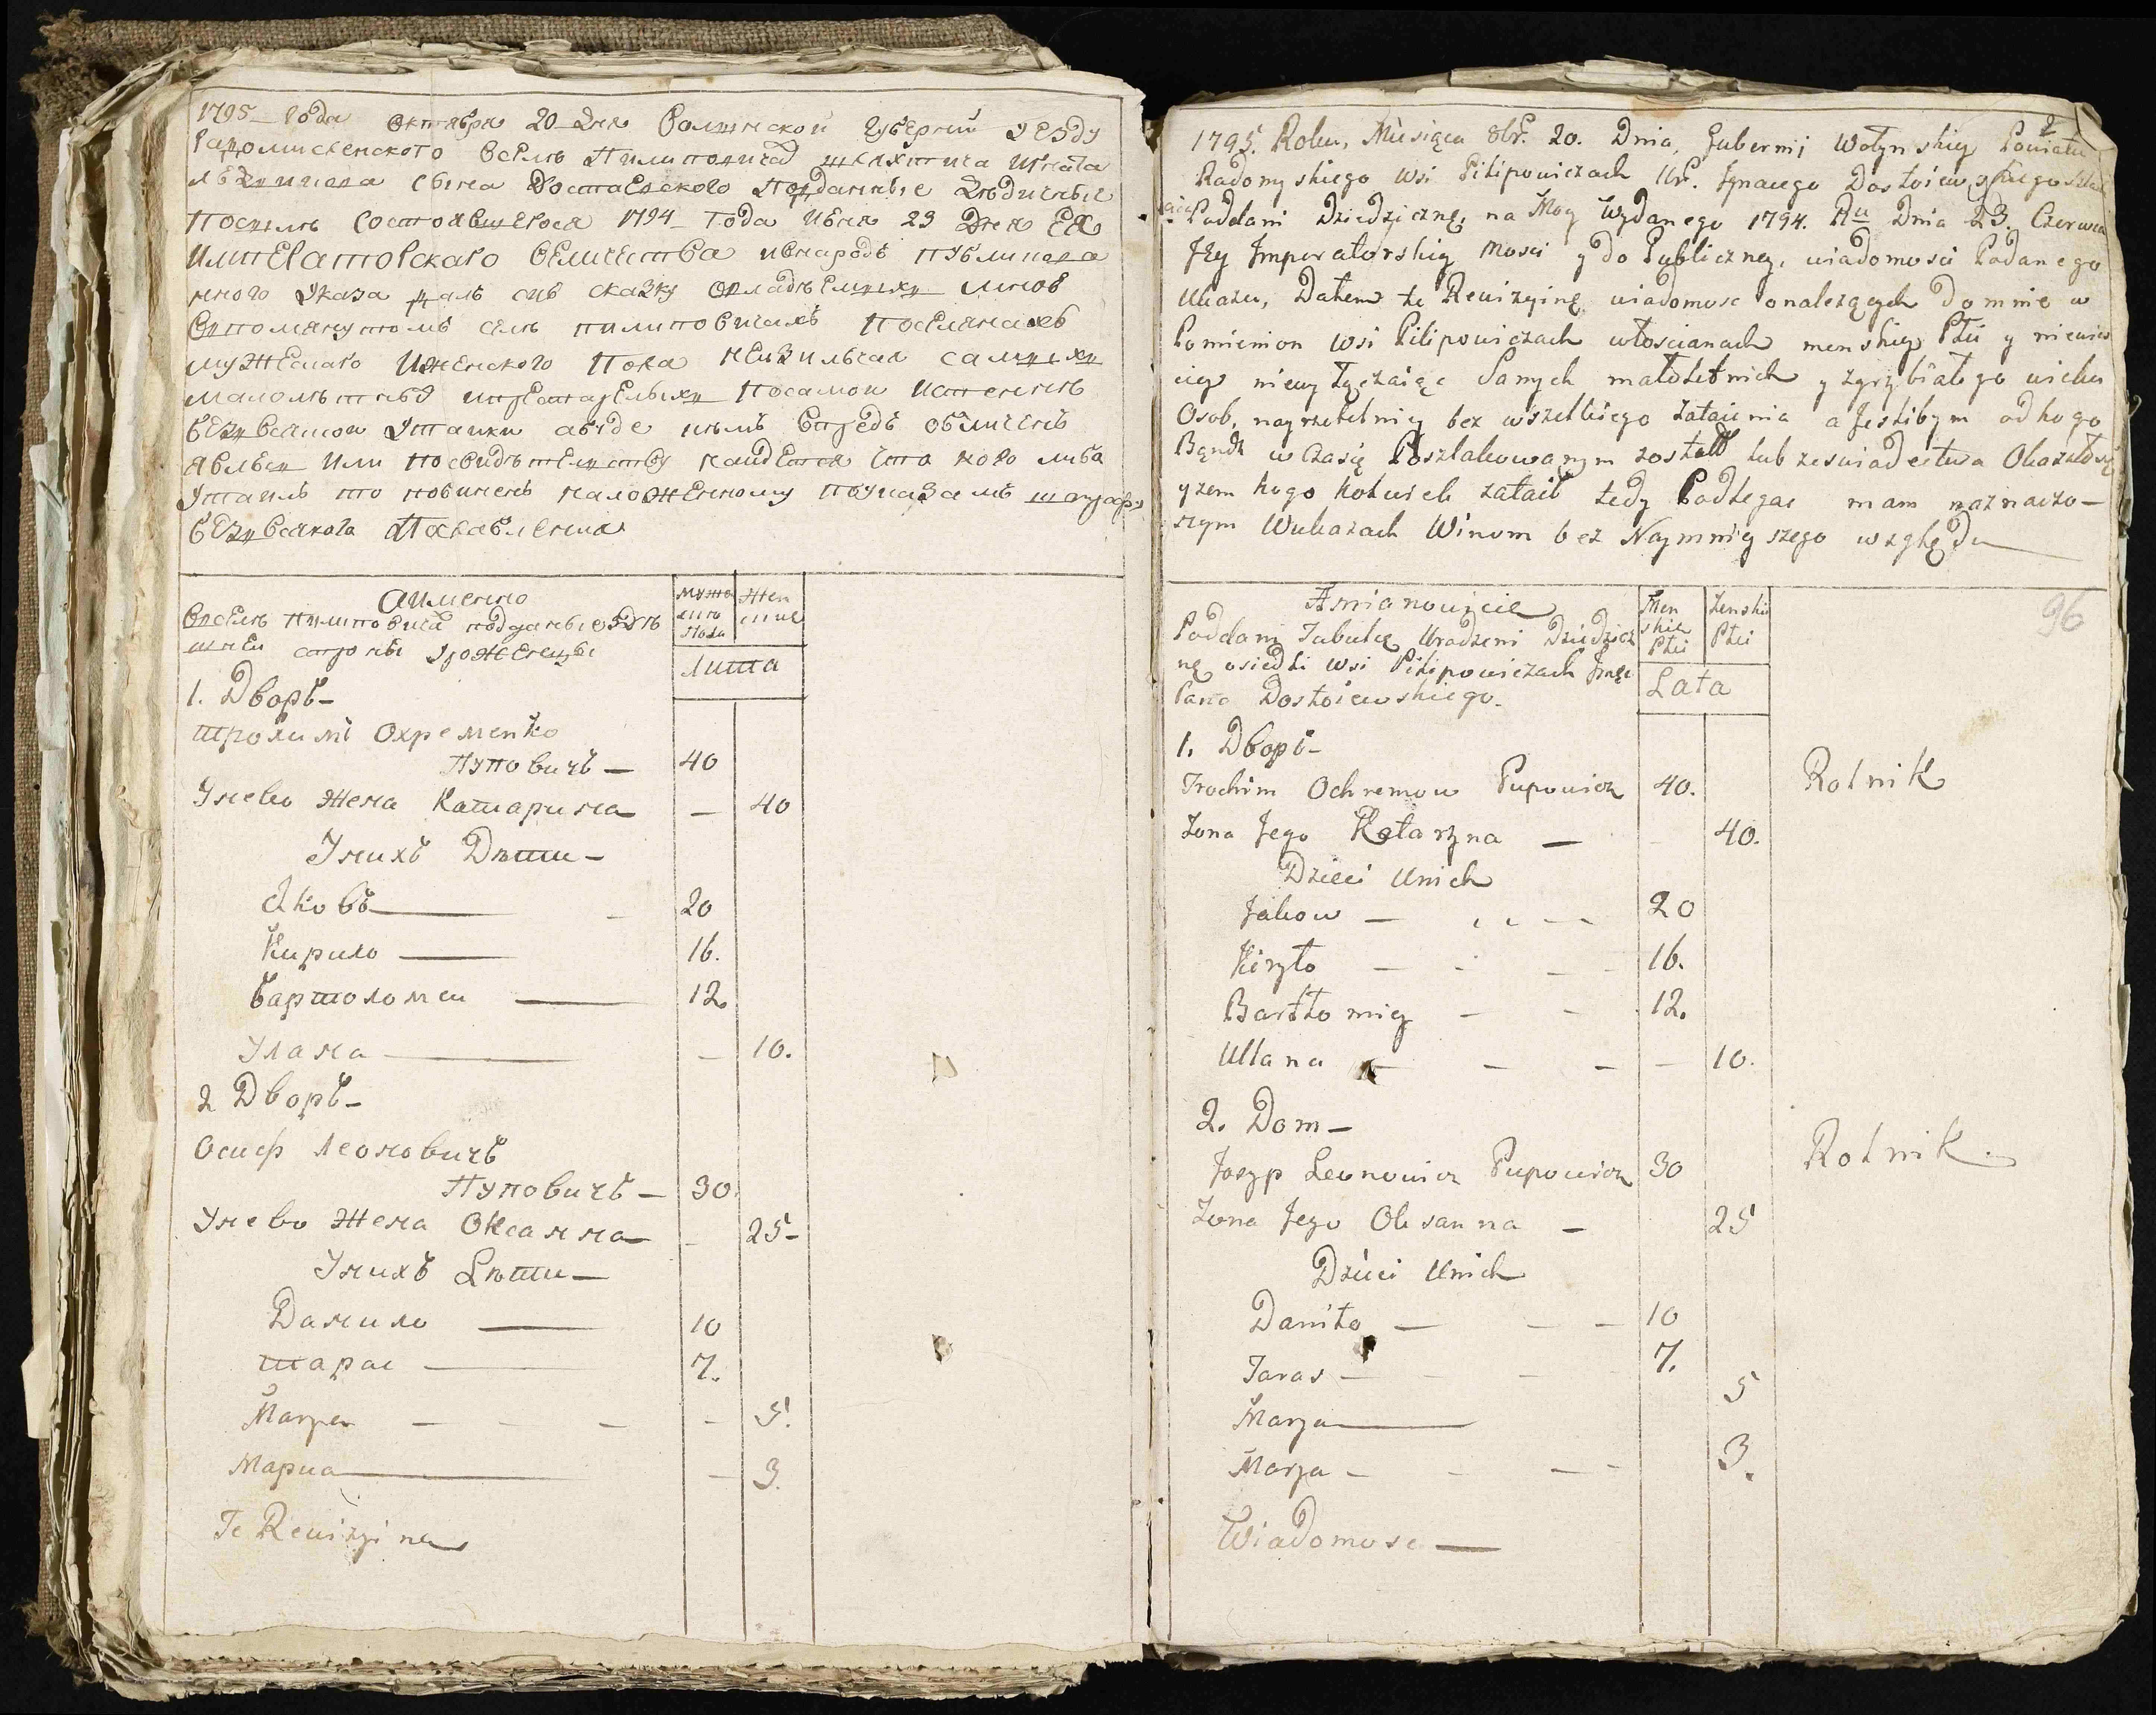 1795 года октября 20 дня Волинской губернии уезду
Радомисленского вселѣ Пилиповичах шляхтича Игната
сына Достаевского подданные
посилѣ состоявшегося 1794 года июня 23 дня Ея
Императорскаго величества и внародъ публикова
нного указа даль сию сказку
селѣ пилиповичахъ поселянахъ
мужескаго иженского пола
малолѣтныхъ ипрестарелыхъ посамои истеннѣ
безъ всякои утаики абуде кемъ впредь обличенъ
явлюсь или посвидѣтелству каидется што кого либо
утаилъ то повиненъ наложенному поуказамъ штрафу
безъ всякого
Аименно
вселѣ Пилиповичах подданые
Муже
ского
пола
Жен
ские
лита
1. Дворъ-
Трохимъ Охременко
Пуповичъ — 40
Унево Жена Катарина — 40
Унихъ Дѣти-
Яковъ — 20
Кирило — 16.
Бартоломеи — 12.
Улана — 10.
2 Дворъ-
Осиф Леоновичъ
Пуповичъ — 30
Унево Жена Оксанна — 25-
Унихъ Дѣти-
Данило — 10
Тарас — 7.
Marya — 5.
Мариа — 3.
Te Rewizyine
2
1795. Roku, Miesiąca 8br. 20. Dnia, Gubernij Wołynskiey Powiatu
Radomyskiego Wsi Pilipowiczach Ur. Jgnacego Dostoiewskiego
Poddani Dziedziczne, na Mocy Wydanego 1794. Ru Dnia 23. Czerwca
Jey Jmperatorskiey Mosci y do Publiczney, wiadomosci Podanego
Ukazu, Datem te Rewizyinę wiadomosc onależących Do mnie w
Pomienion Wsi Pilipowiczach włoscianach menskiey Płci y niewies
ciey niewyłączaiąc Samych małoletnich y zgrzybiałego wieku
Osob, nayrzetelniey bez wszelkiego Zataienia a Jeslibym od kogo
Bąndz w Czasie Poszlakowanym został lub zeswiadectwa Okazało się
yzem kogo kolwiek zataił tedy Podlegac mam naznaczo-
nym Wukazach Winom bez Naymnieyszego względu
96
Amianowicie
Poddani Tabułę Uradzeni Dziedzicz
nę osiedli wsi Pilipowiczach Jmę
Pana Dostoiewskiego.
Men
skie
Płci
Zenskie
Płci
Lata
1. Дворъ-
Trochim Ochremow Pupowicz 40. Rolnik
Zona Jego Katarzna — 40.
Dzieci Unich
Jakow — 20
Kiryło — 16.
Bartłomiey — 12.
Ullana — 10.
2. Dom-
Jozyp Leonowicz Pupowicz 30 Rolnik.
Zona Jego Oksanna — 25
Dzieci Unich
Daniło — 10
Taras — 7.
Marya — 5
Marya — 3.
Wiadomosc —